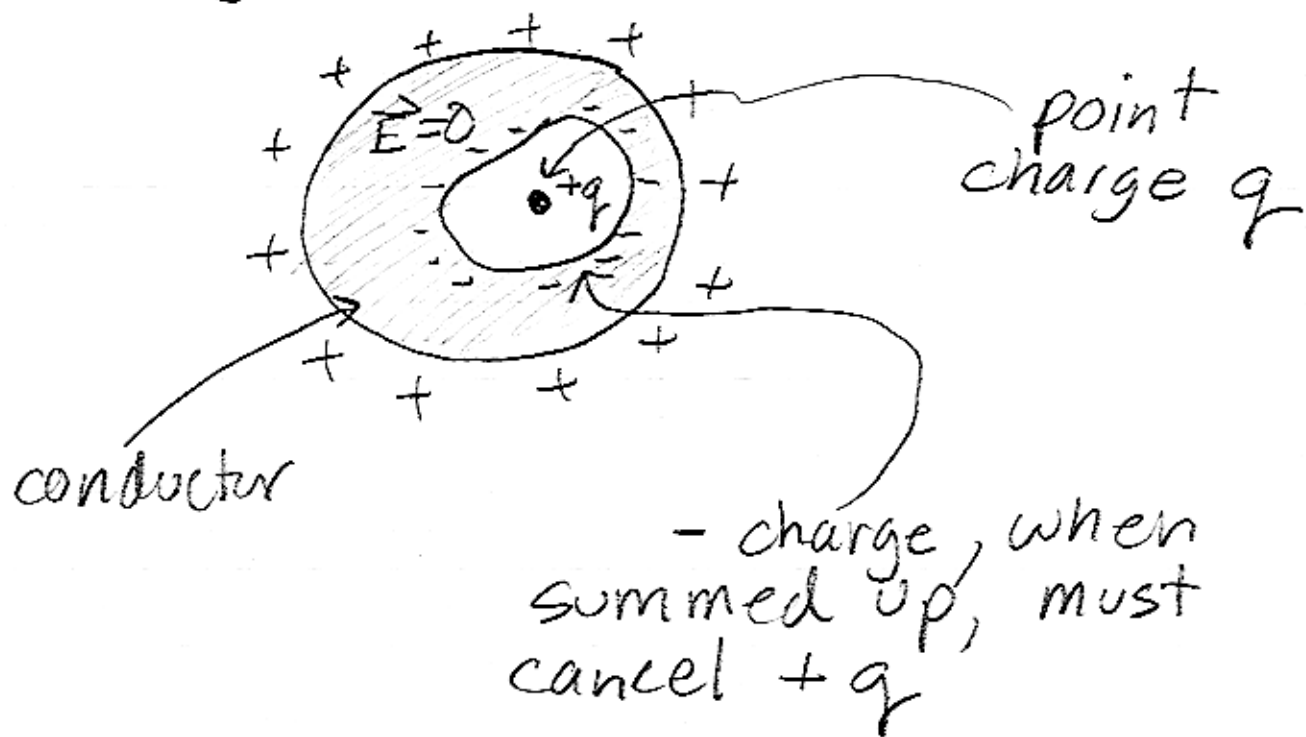 E⃗=0
+q
point
charge q
conductor
- charge, when
summed up, must
cancel +q